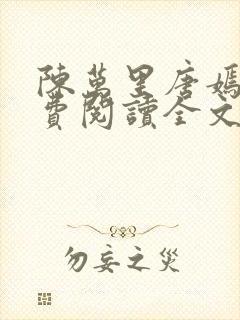 陳萬里唐嫣
費閱讀全文
勿妄之災